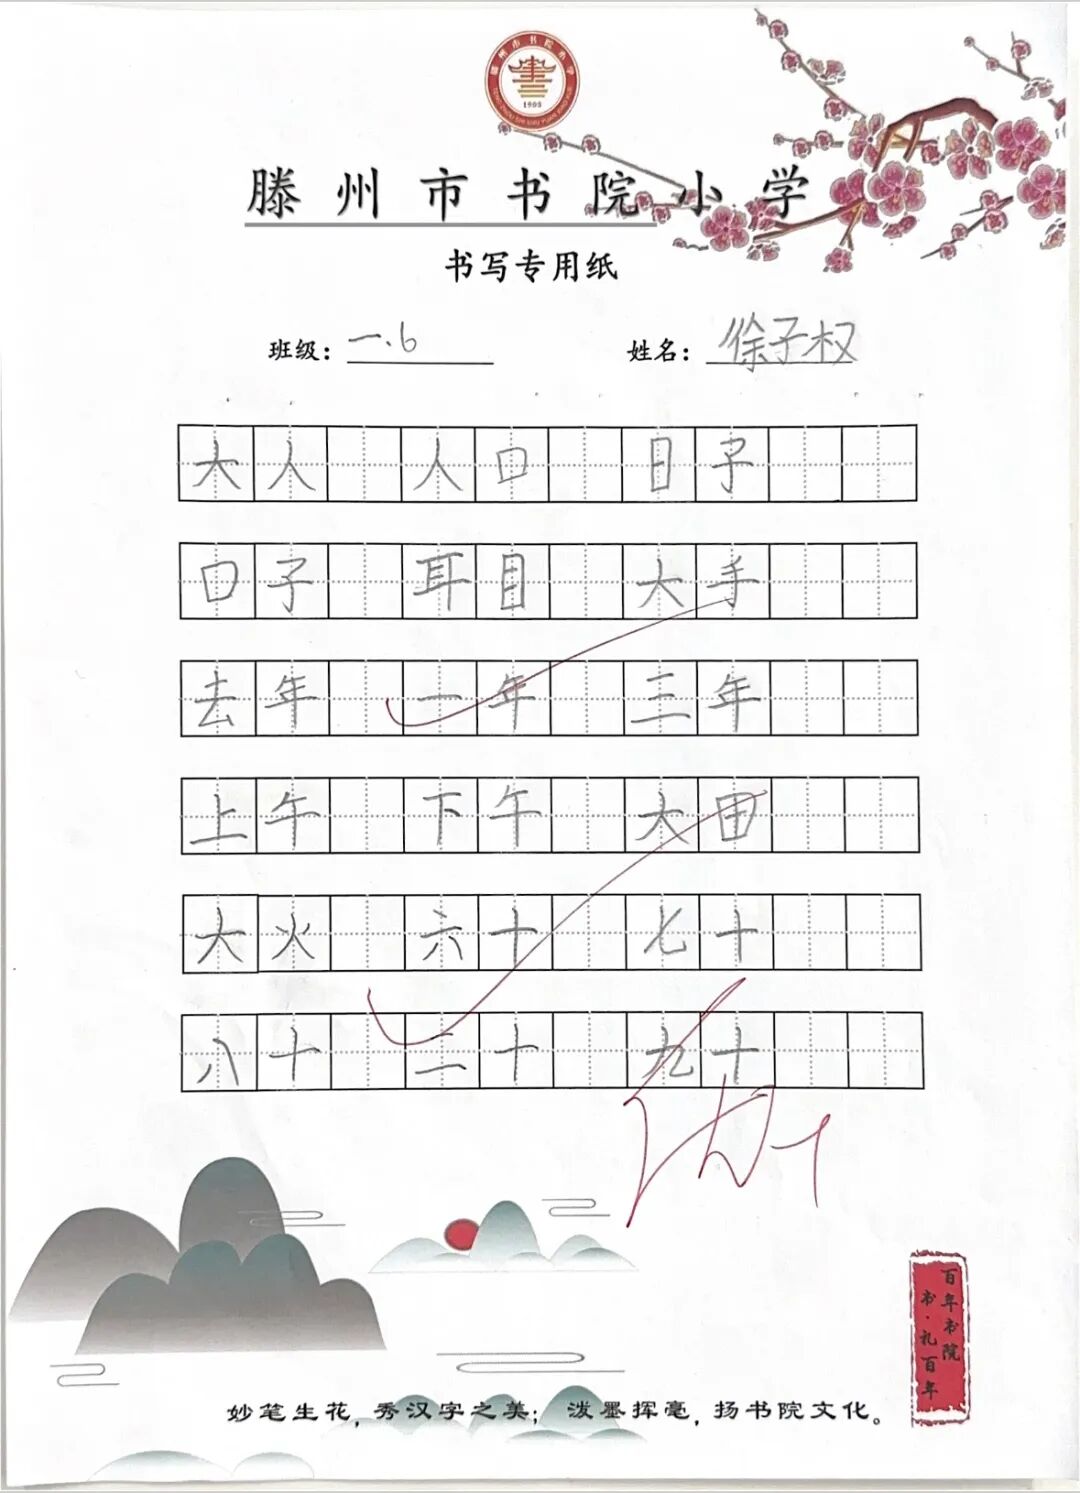 滕州市书院小学
1903
滕州市书院小学
书写专用纸
班级：一.6 姓名：徐子权
大人 人口 日子
口子 耳目 大手
去年 一年 三年
上午 下午 大田
大火 六十 七十
八十 二十 九十
百年书院
书·礼百年
妙笔生花，秀汉字之美；泼墨挥毫，扬书院文化。